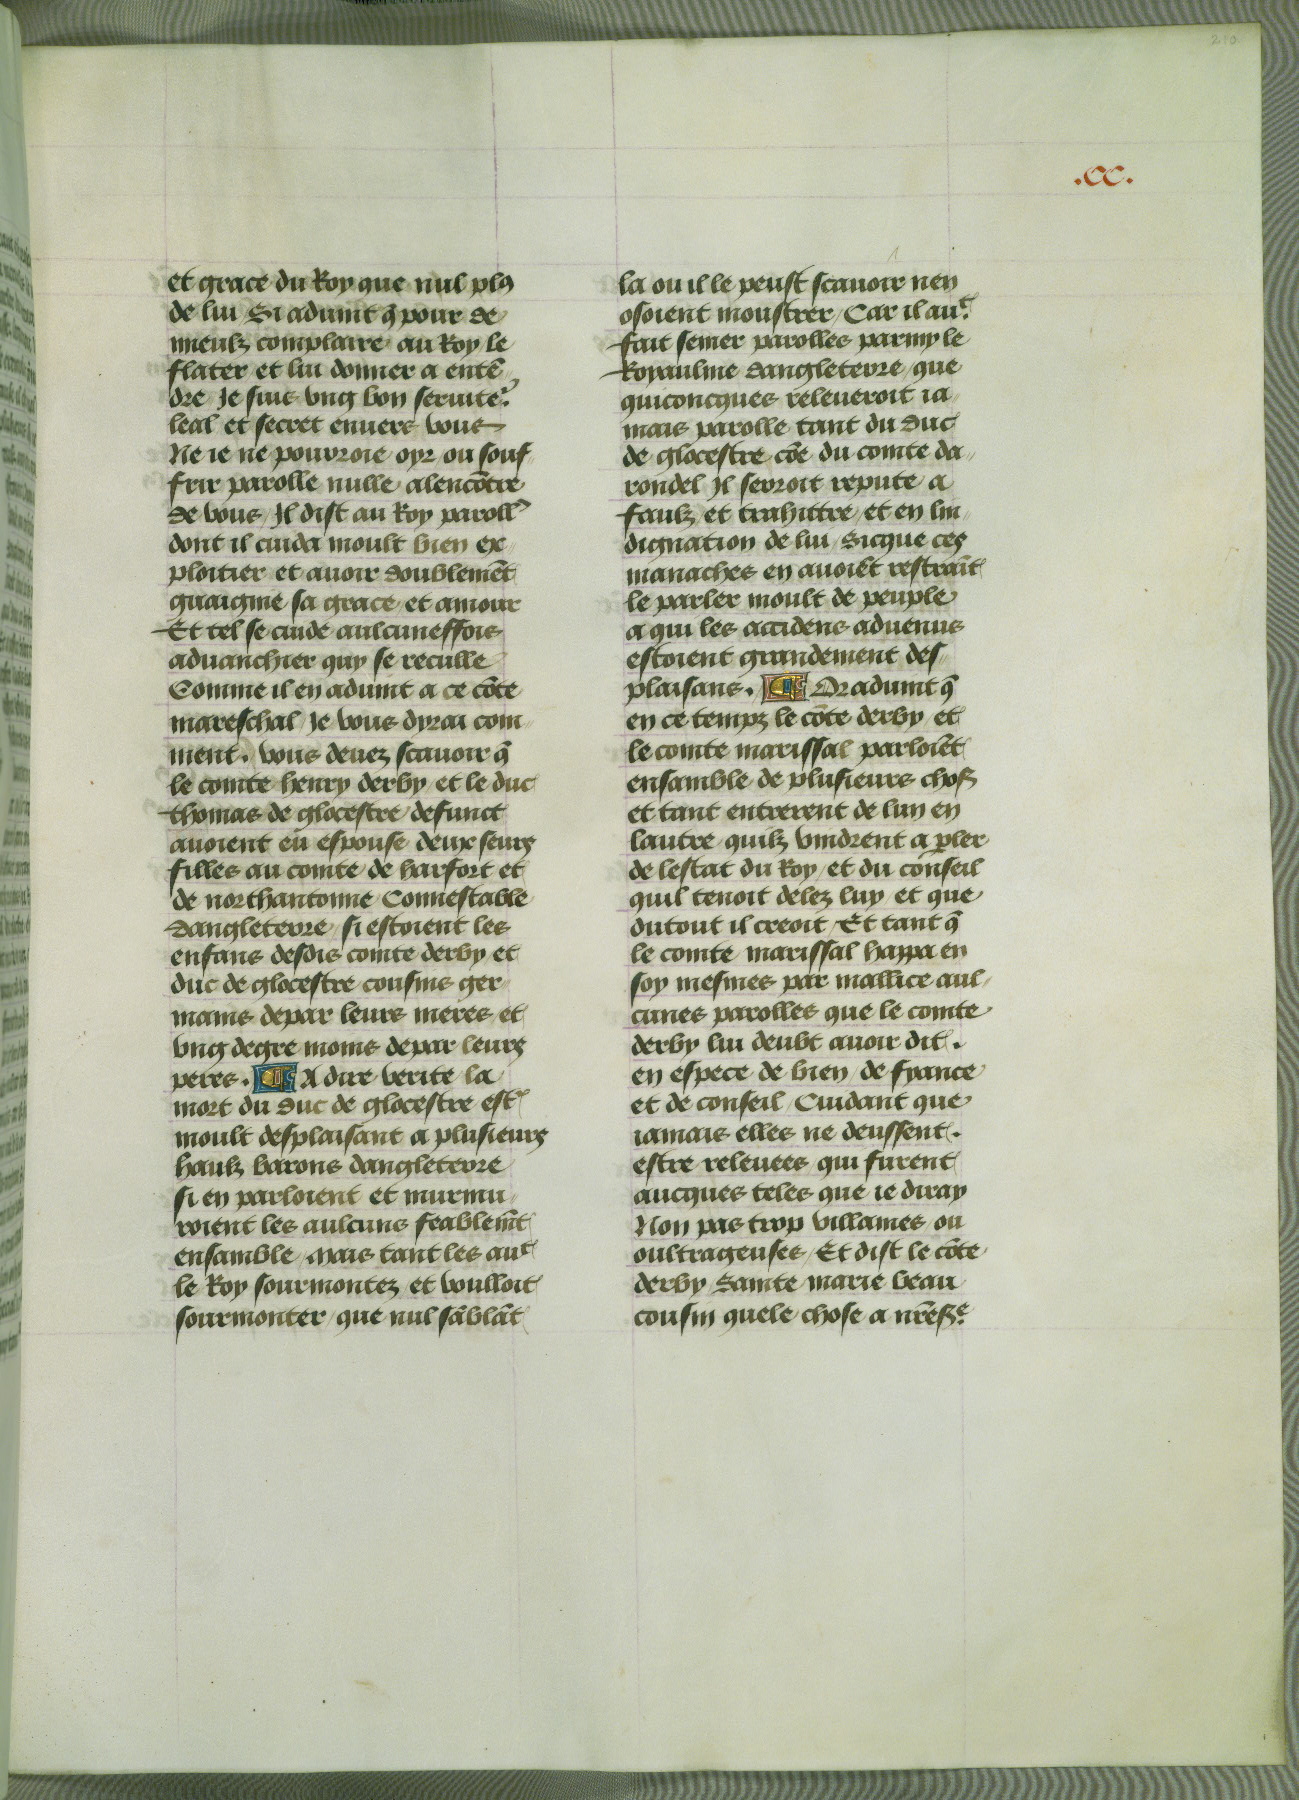 210
.CC.
et grace du Roy que nul plꝰ
de lui Si aduint q̄ pour se
mieulz complaire au Roy le
flater et lui donner a entē
dre Je suis vng bon seruite᷑
leal et secret enuers vous
Ne ie ne pourroie oyr ou souf
frir parolle nulle alencōtre
de vous Il dist au Roy paroll᷑
dont il cuida moult bien ex
ploitier et auoir doublemēt
guaignie sa grace et amour
Et tel se cuide aulcuneffois
aduanchier quy se reculle
Comme il en aduint a ce cōte
mareschal Je vous dyrai com
ment. vous deuez scauoir q̄
le comte henry derby et le duc
thomas de glocestre defunct
auoient eu espouse deux seurs
filles au comte de harfort et
de northantonne Connestable
dangleterre si estoient les
enfans desdis comte derby et
duc de glocestre cousins ger
mains depar leurs meres et
vng degre moins depar leurs
peres. ¶ A dire verite la
mort du duc de glocestre est᷑
moult desplaisant a plusieurs
haulz barons dangleterre
si en parloient et murmu
roient les aulcuns feablem̄t
ensamble mais tant les aut᷑
le Roy sourmontez et voulloit
sourmonter que nul sāblāt
la ou il le peust scauoir nen
osoient moustrer Car il aut᷑
fait semer parolles parmy le
Royaulme dangleterre que
quiconcques releueroit ia
mais parolle tant du duc
de glocestre cōe du comte da
rondel Il seroit repute a
faulz et trahittre et en lin
dignation de lui Sicque ces
manaches en auoiēt restraīt
le parler moult de peuple
a qui les accidens aduenus
estoient grandement des
plaisans. ¶ Or aduint q̄
en ce tempz le cōte derby et
le comte marissal parloiēt
ensamble de plusieurs chos᷑
et tant entrerent de lun en
lautre quilz vindrent a ꝑler
de lestat du Roy et du conseil
quil tenoit delez luy et que
dutout il creoit Et tant q̄
le comte marissal happa en
soy mesmes par mallice aul
cunes parolles que le comte
derby lui deubt auoir dit.
en espece de bien de fyance
et de conseil Cuidant que
iamais elles ne deussent.
estre releuees qui furent
aucques teles que ie diray
Non pas trop villaines ou
oultrageuses Et dist le cōte
derby Sainte marie beau
cousin quele chose a nr̄e s᷑e